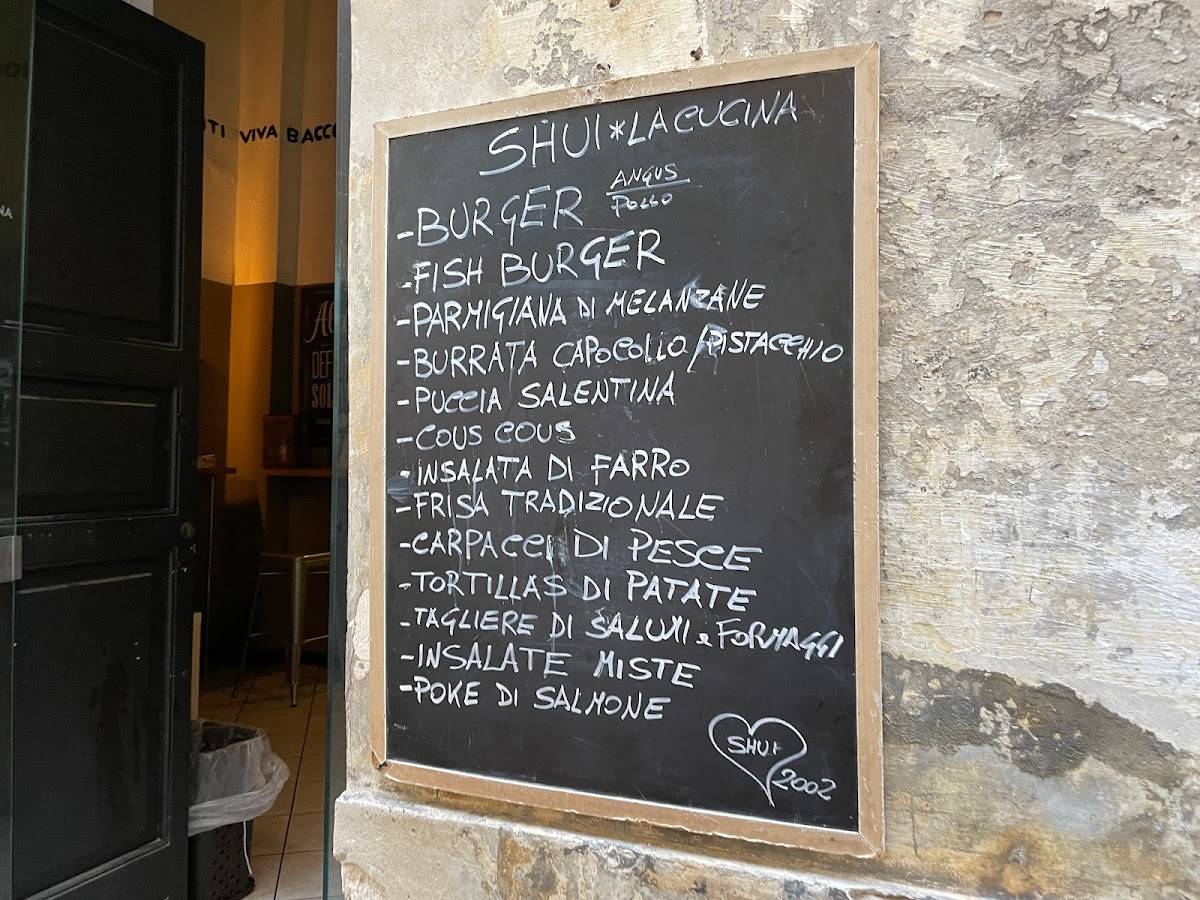 SHUI*LA CUCINA
-BURGER ANGUS
POLLO
-FISH BURGER
-PARMIGIANA DI MELANZANE
-BURRATA CAPOCOLLO/PISTACCHIO
-PUCCIA SALENTINA
-COUS COUS
-INSALATA DI FARRO
-FRISA TRADIZIONALE
-CARPACCI DI PESCE
-TORTILLAS DI PATATE
-TAGLIERE DI SALUMI e FORMAGGI
-INSALATE MISTE
-POKE DI SALMONE
SHUI
2002
VIVA BACCO